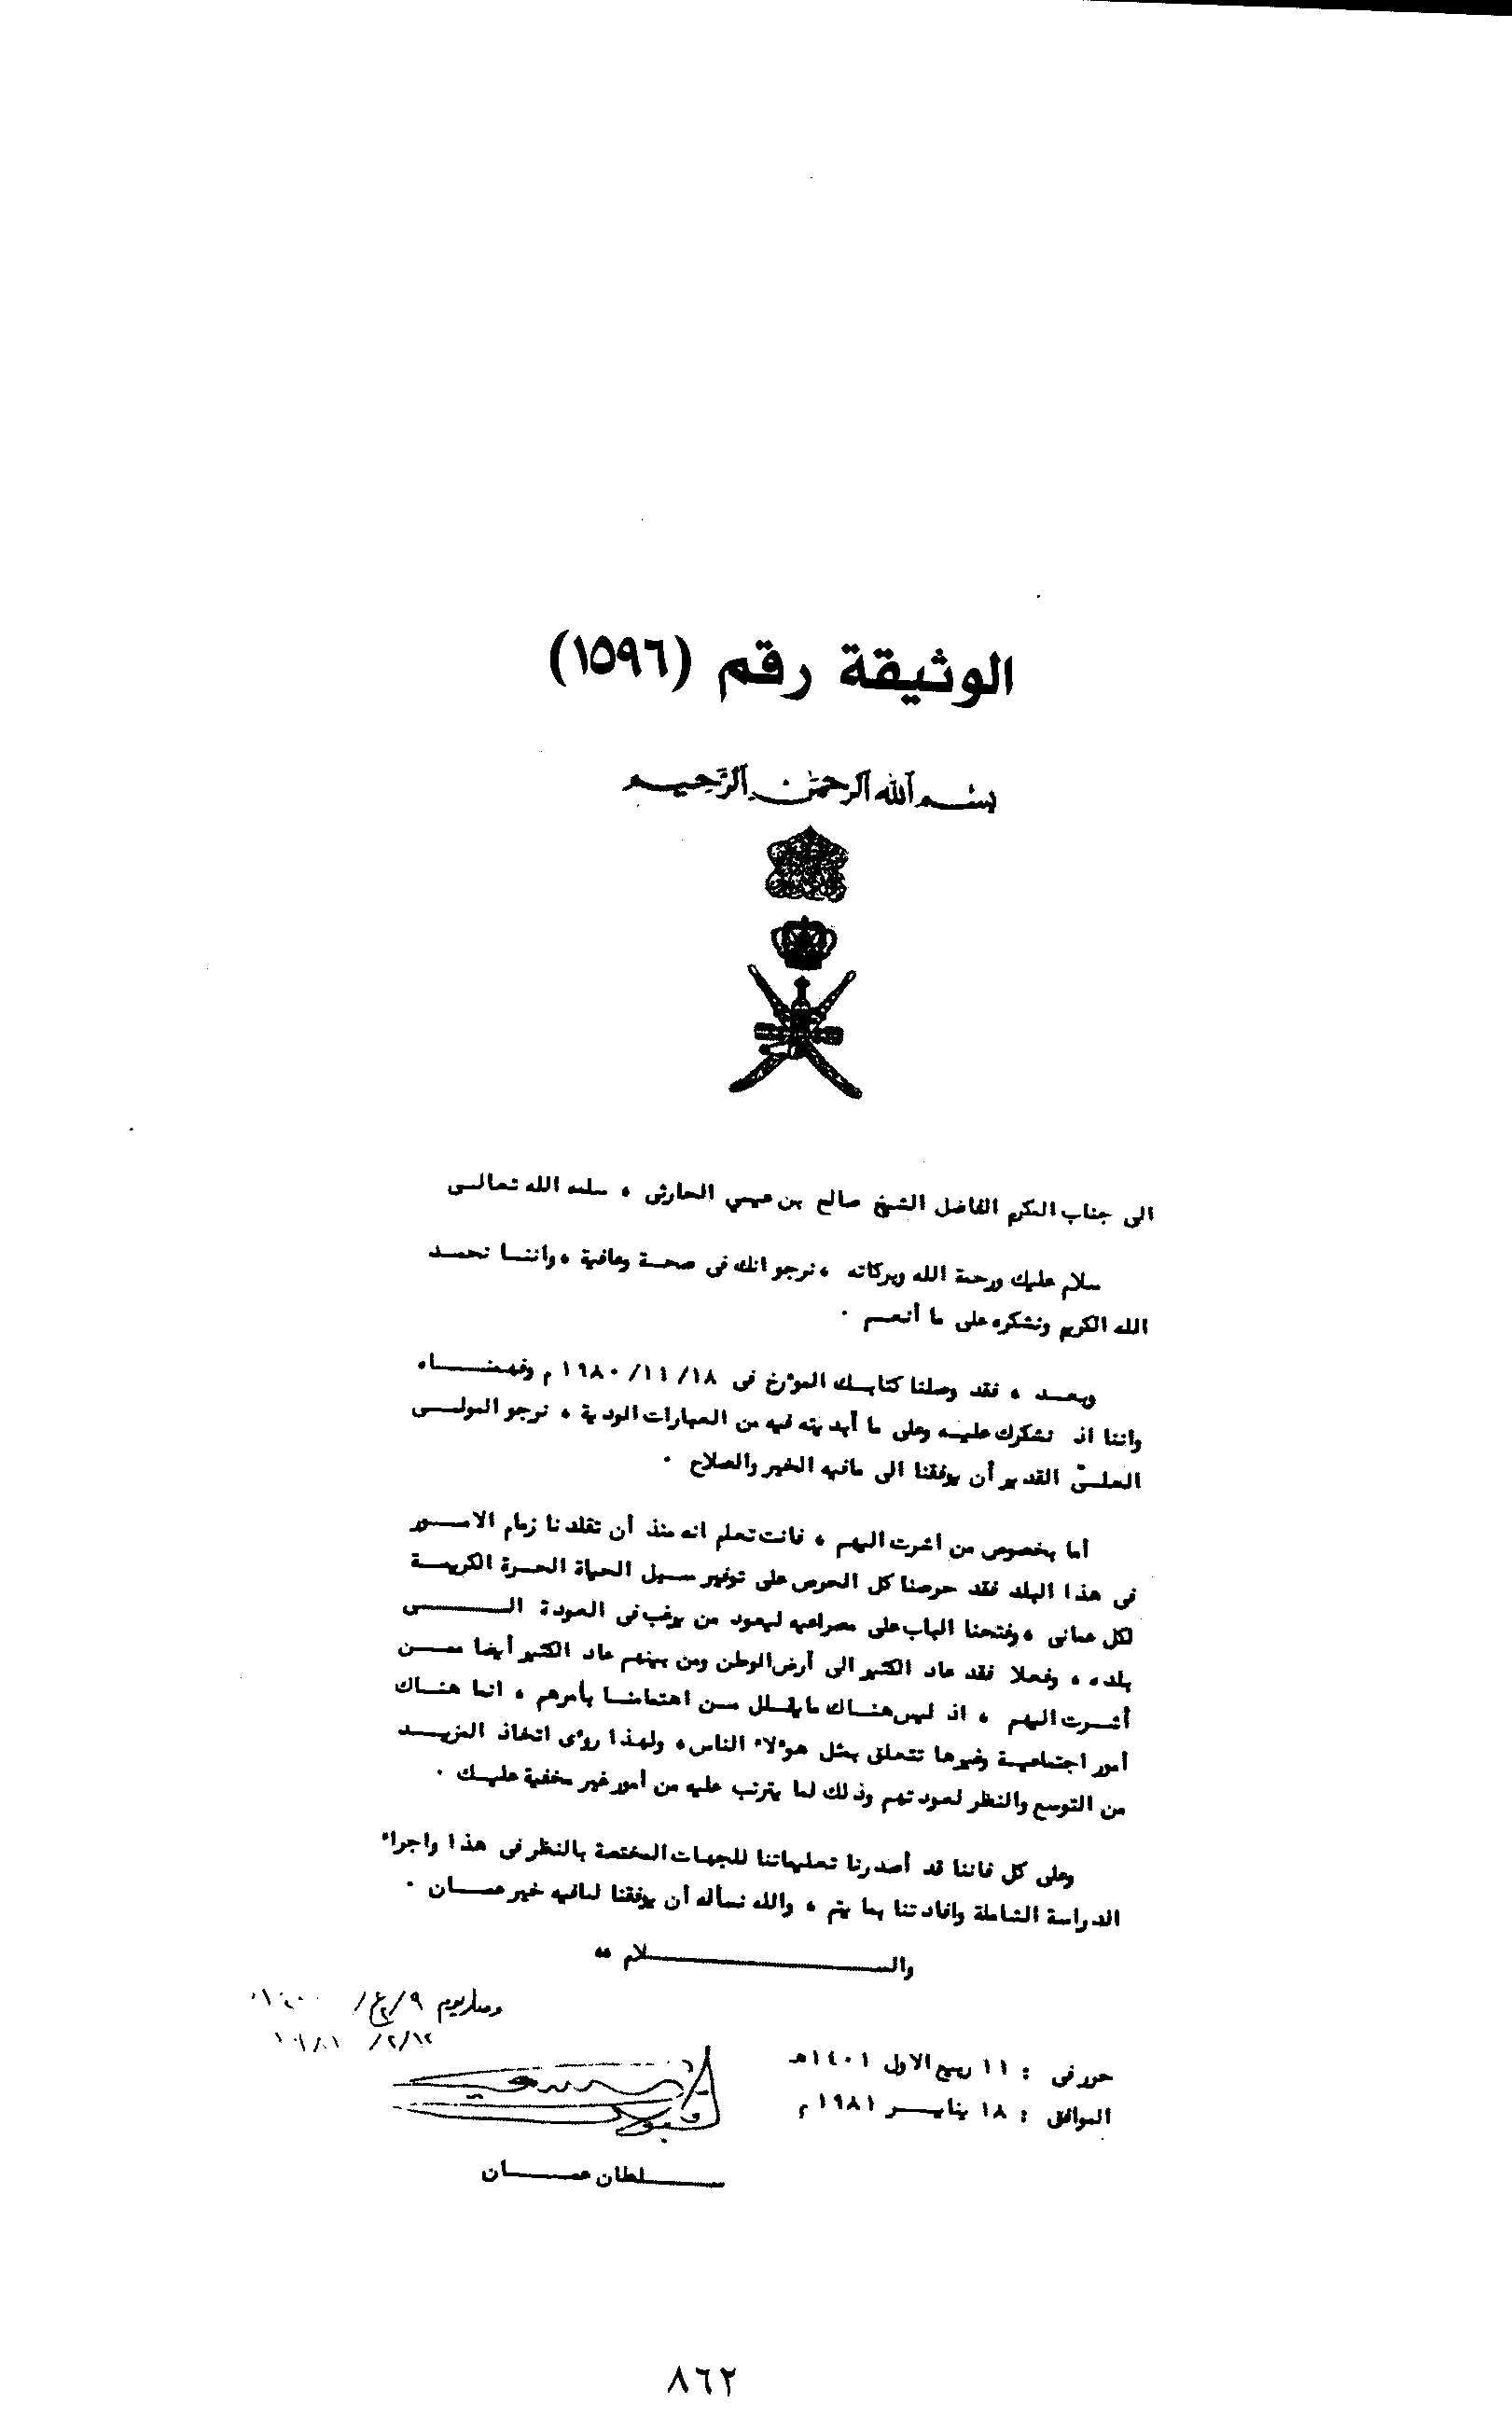 الوثيقة رقم (١٥٩٦)
بسم الله الرحمن الرحيم
الى جناب المكرم الفاضل الشيخ صالح بن عيسي الحارثى ، سلمه الله تعالى
سلام عليك ورحمة الله وبركاته ، نرجو انك فى صحة وعافية ، واننا نحمد
الله الكريم ونشكره على ما أنعم .
وبعد ، فقد وصلنا كتابك المؤرخ فى ١٨/ ١١/ ١٩٨٠ م وفهمناه
واننا اذ نشكرك عليه وعلى ما أبديته فيه من العبارات الودية ، نرجو المولى
العليّ القدير أن يوفقنا الى مافيه الخير والصلاح .
أما بخصوص من اشرت اليهم ، فانت تعلم انه منذ أن تقلدنا زمام الامور
فى هذا البلد فقد حرصنا كل الحرص على توفير سبل الحياة الحرة الكريمة
لكل عمانى ، وفتحنا الباب على مصراعيه ليعود من يرغب فى العودة الى
بلده ، وفعلا فقد عاد الكثير الى أرض الوطن ومن بينهم عاد الكثير أيضا ممن
أشرت اليهم ، اذ ليس هناك مايقلل من اهتمامنا بأمرهم ، انما هناك
أمور اجتماعية وغيرها تتعلق بمثل هؤلاء الناس ، ولهذا روئى اتخاذ المزيد
من التوسع والنظر لعودتهم وذلك لما يترتب عليه من أمور غير مخفية عليك .
وعلى كل فاننا قد أصدرنا تعليماتنا للجهات المختصة بالنظر فى هذا واجراء
الدراسة الشاملة وافادتنا بما يتم ، والله نسأله أن يوفقنا لمافيه خير عمان .
والسلام ،،
٩/ع٢/
١٢/٢/
حرر فى : ١١ ربيع الاول ١٤٠١هـ
الموافق : ١٨ يناير ١٩٨١ م
قابوس بن سعيد
سلطان عمان
٨٦٢